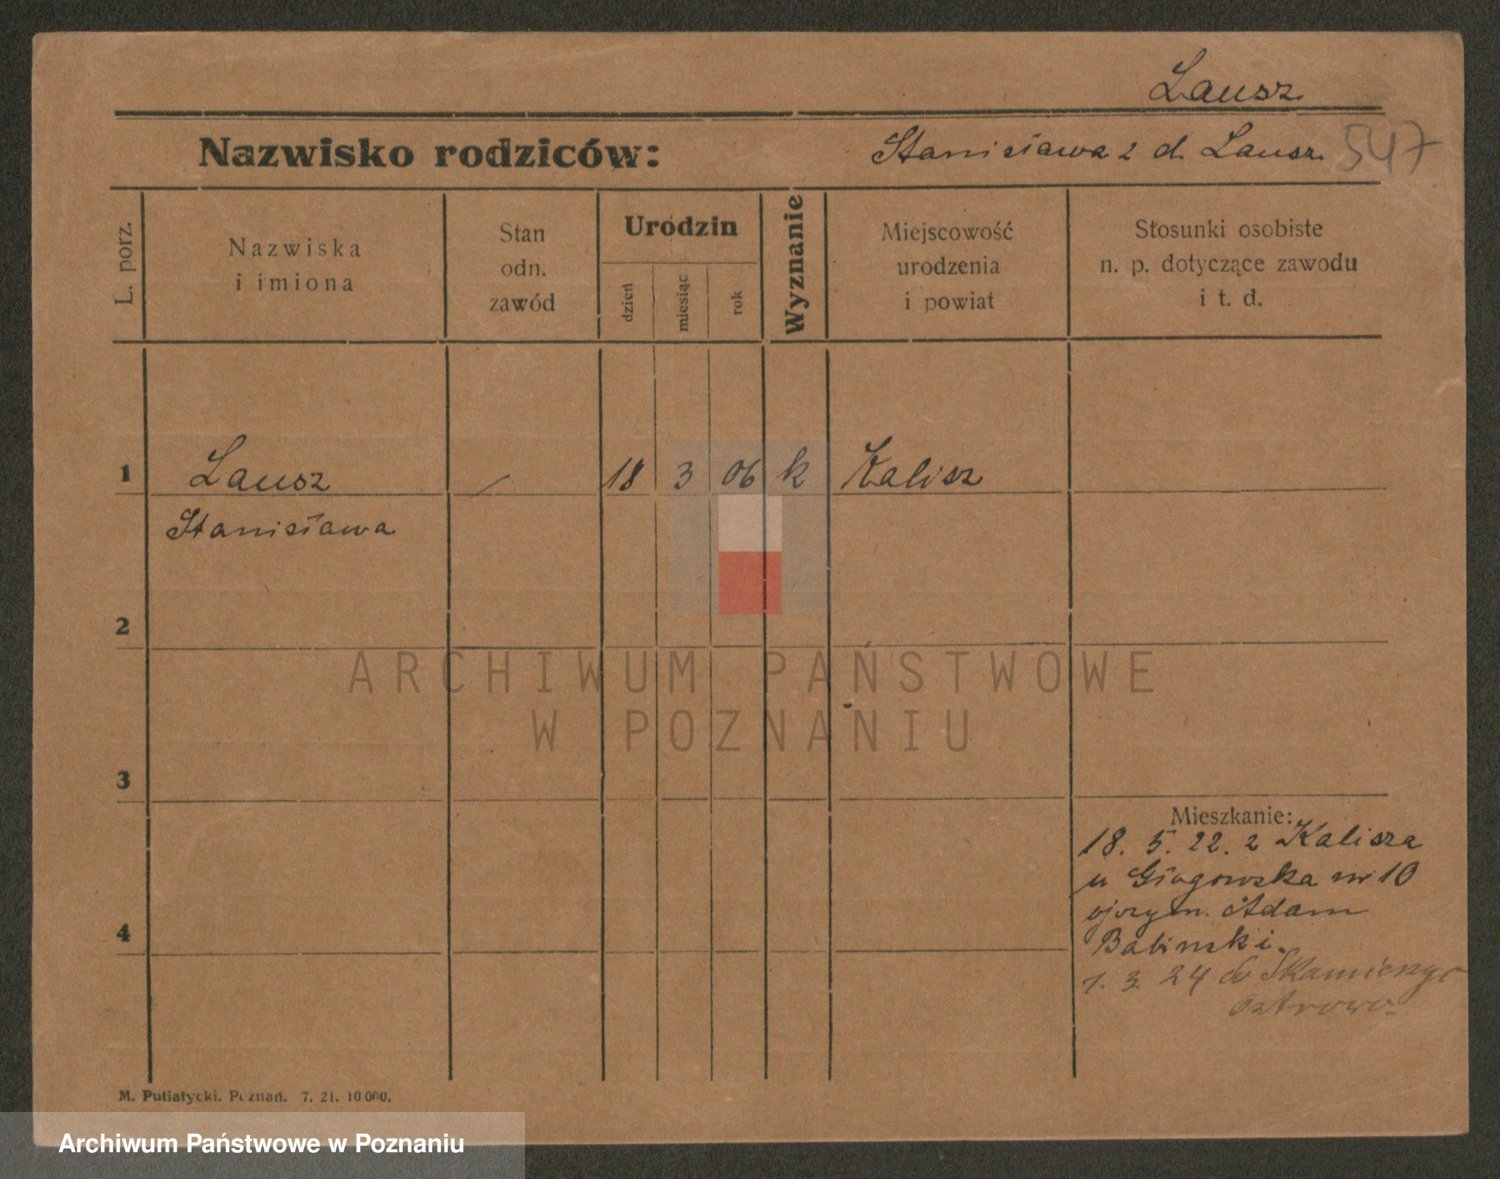 Lausz
Nazwisko rodziców: Stanisława z d. Lausz. 547
L. porz.
Nazwiska
i imiona
Stan
odn.
zawód
Urodzin
dzień
miesiąc
rok
Wyznanie
Miejscowość
urodzenia
i powiat
Stosunki osobiste
n. p. dotyczące zawodu
i t. d.
1 Lausz / 18 3 06 k Kalisz
Stanisława
2
3
4
Mieszkanie:
18. 5. 22. z Kalisza
u Głogowska nr 10
Adam
Babinski.
1. 3. 24 do
Ostrowo
M. Putiatycki. Poznań. 7. 21. 10 000.
ARCHIWUM PAŃSTWOWE
W POZNANIU
Archiwum Państwowe w Poznaniu